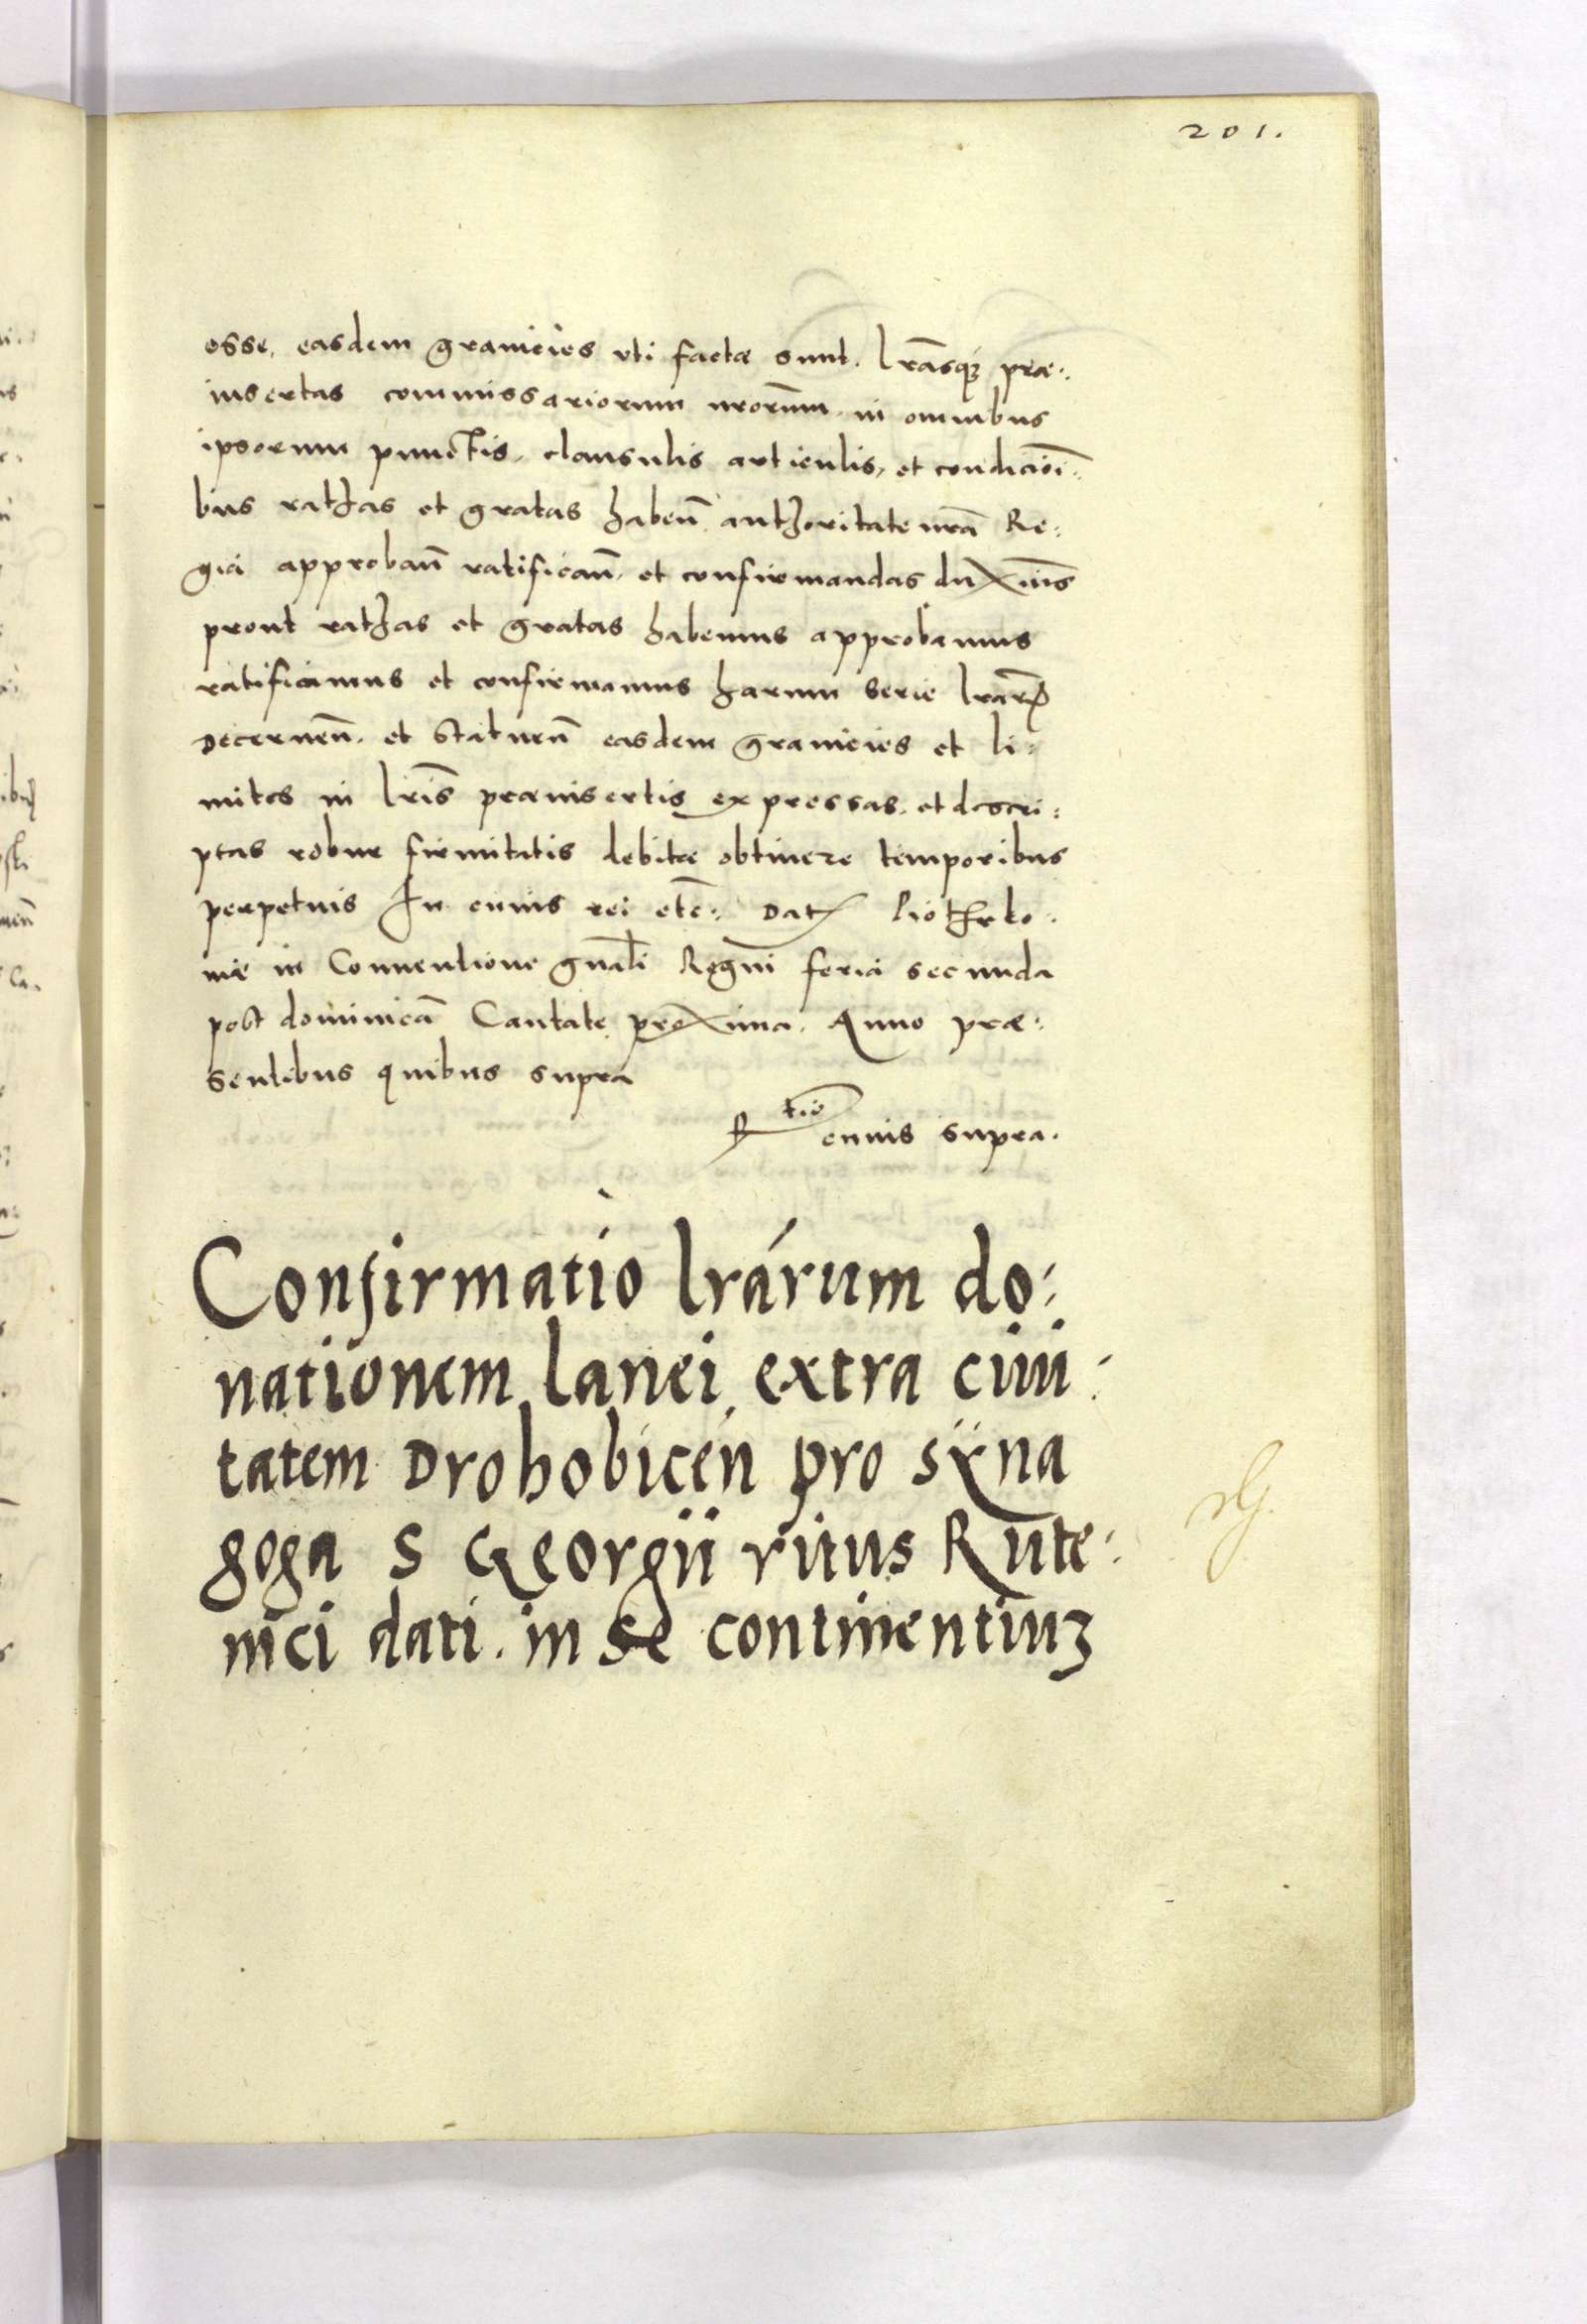 201.
esse, easdem granicies vti factæ sunt. lrãsq̃ȝ præ:
insertas commissariorum nrorũm. in omnibus
ipsorum punctis, clausulis articulis, et condicioĩ:
bus rathas et gratas habeñ authoritate nrã Re:
gia approbañ ratificañ. et confirmandas duximũs
prout rathas et gratas habemus approbamus
ratificamus et confirmamus harum serie lrarꝝ
decerneñ. et statueñ easdem granicies et li:
mites in lrĩs præinsertis expressas. et descri:
ptas robur firmitatis debitæ obtinere temporibus
perpetuis In cuius rei etc̃: Datꝭ Piothrko:
uiæ in Conuentione gñali Regni feria secunda
post dominicã Cantate proxima. Anno præ:
sentibus quibus supra
R tio cuius supra.
Confirmatio lrárum do:
nationem lanei extra ciui:
tatem Drohobiceñ pro sÿna
goga S Georgii ritus Rute:
nici dati. in se continentiuȝ